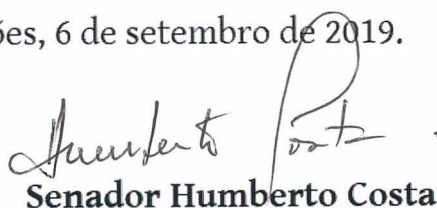 ões, 6 de setembro de 2019.
Humberto Costa
Senador Humberto Costa